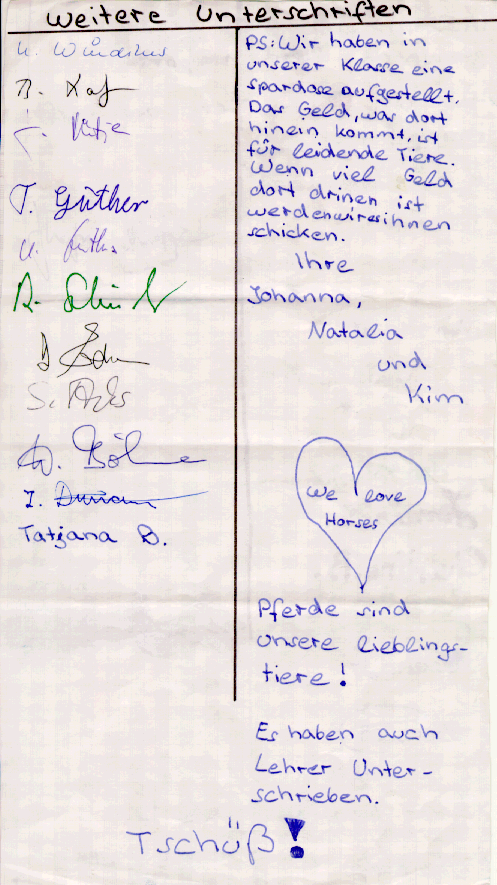 weitere Unterschriften
T. Güther
Tatjana B.
PS: Wir haben in
unserer Klasse eine
spardose aufgestellt.
Das Geld, was dort
hinein kommt, ist
für leidende Tiere.
Wenn viel Geld
dort drinen ist
werdenwiresihnen
schicken.
Ihre
Johanna,
Natalia
und
Kim
We love
Horses
Pferde sind
unsere lieblings-
tiere!
Es haben auch
Lehrer Unter-
schrieben.
Tschüß!